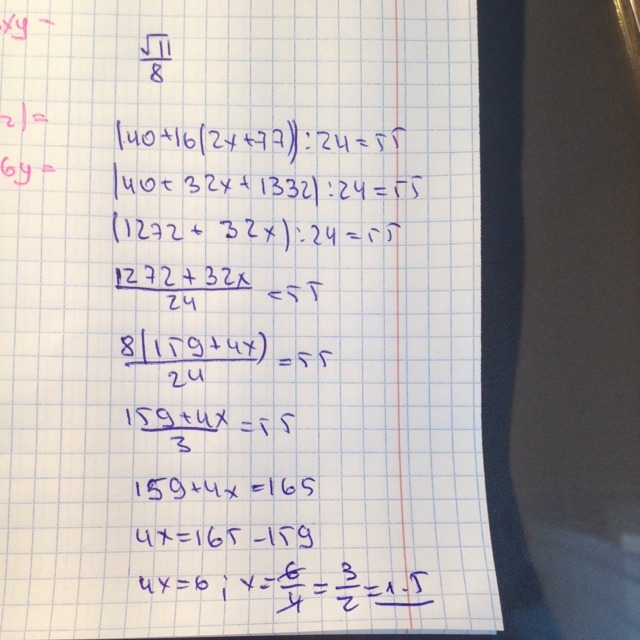 xy -
√11
8
(40+16(2x+77)):24=55
)=
(40+32x+1332):24=55
6y=
(1272+32x):24=55
1272+32x
24
=55
8(159+4x)
24
=55
159+4x
3
=55
159+4x=165
4x=165-159
4x=6; x=6/4=3/2=1.5